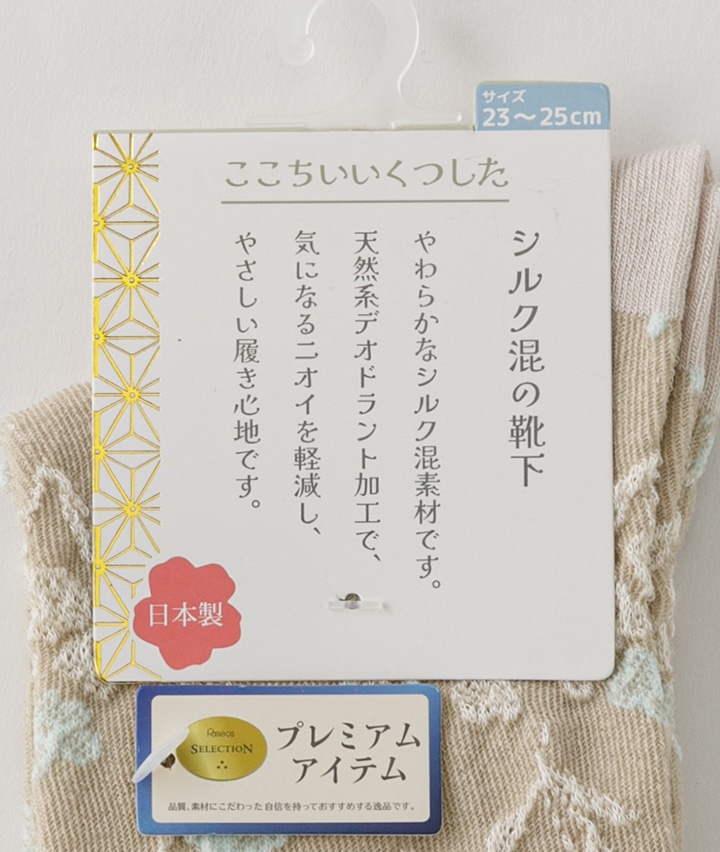 サイズ
23～25cm
ここちいいくつした
シルク混の靴下
やわらかなシルク混素材です。
天然系デオドラント加工で、
気になるニオイを軽減し、
やさしい履き心地です。
日本製
Paseos
SELECTION
プレミアム
アイテム
品質、素材にこだわった自信を持っておすすめする逸品です。